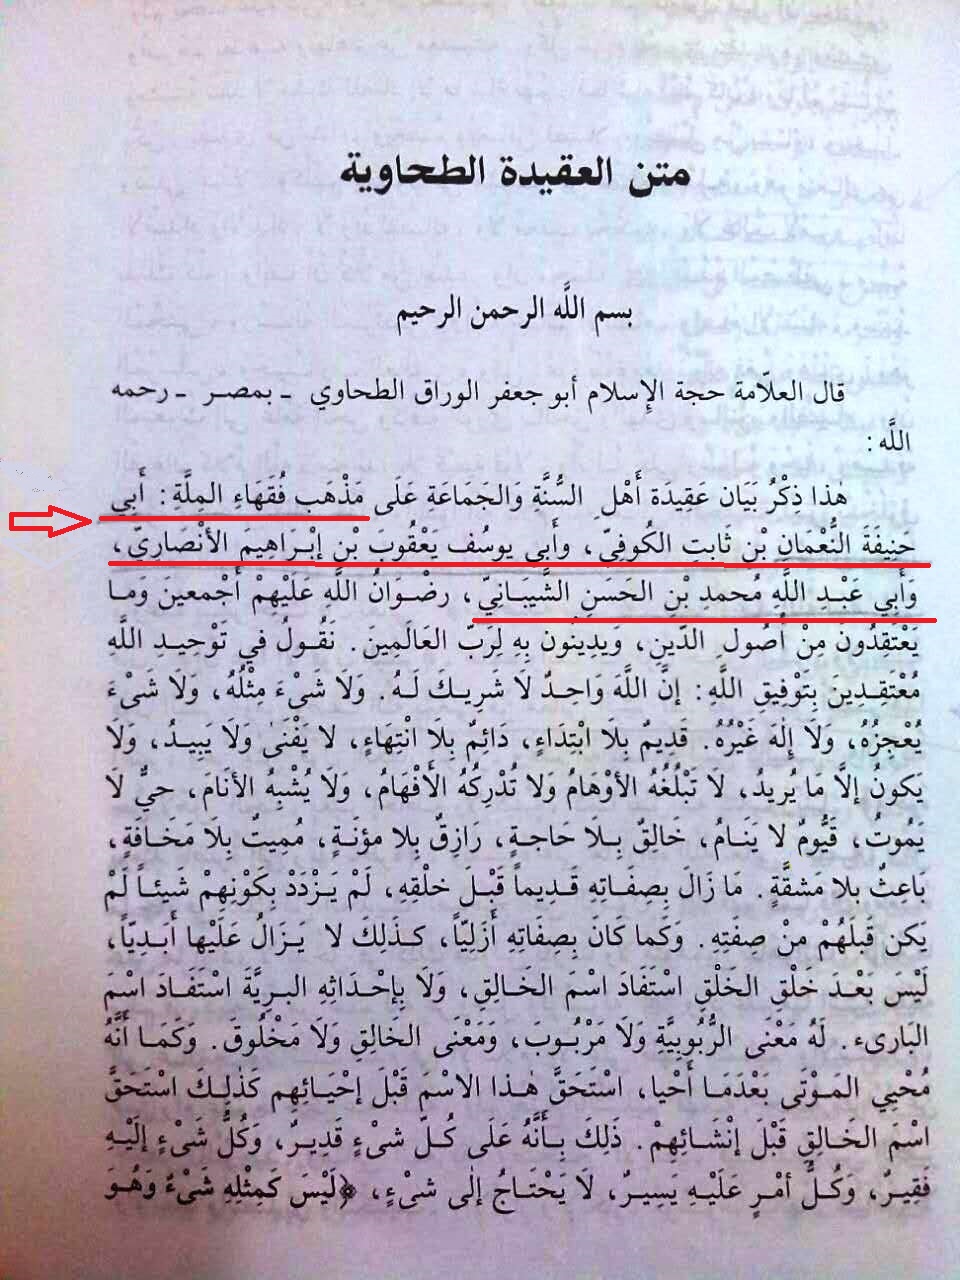 متن العقيدة الطحاوية
بسم اللَّه الرحمن الرحيم
قال العلاّمة حجة الإِسلام أبو جعفر الوراق الطحاوي ـ بمصر ـ رحمه
اللَّه:
هٰذا ذِكْرُ بَيَان عَقِيدَة أَهْلِ السُّنَّةِ وَالجَمَاعَةِ عَلَى مَذْهَب فُقَهَاءِ المِلَّةِ: أَبي
حَنِيفَةَ النُّعْمَانِ بْنِ ثَابتِ الكُوفِيّ، وأَبي يوسُف يَعْقُوبَ بْنِ إبْرَاهِيمَ الأَنْصَارِيّ،
وَأَبِي عَبْدِ اللَّهِ مُحمدِ بْنِ الحَسَنِ الشَّيبَانِيّ، رضْوَانُ اللَّهِ عَلَيْهِمْ أجْمعينَ وَمَا
يَعْتَقِدُونَ مِنْ أُصُولِ الدِّينِ، وَيدِينُون بِهِ لِرَبِّ العَالَمِينَ. نَقُولُ في تَوْحِيدِ اللَّهِ
مُعْتَقِدِينَ بِتَوْفِيقِ اللَّهِ: إنَّ اللَّهَ وَاحِدٌ لَا شَرِيكَ لَهُ. وَلَا شَىْءَ مِثْلُهُ، وَلَا شَىْءَ
يُعْجِزُهُ، وَلَا إِلٰهَ غَيْرُهُ. قَدِيمٌ بِلَا ابْتدَاءٍ، دَائِمٌ بِلَا انْتِهَاءٍ، لا يَفْنَىٰ وَلَا يَبِيدُ، وَلَا
يَكونُ إلَّا مَا يُريدُ، لَا تَبْلُغُهُ الأوْهَامُ وَلَا تُدْرِكُهُ الأَفْهَامُ، وَلَا يُشْبِهُ الأنَامَ، حيٌّ لَا
يَمُوتُ، قَيُّومٌ لا يَنَامُ، خَالِقٌ بِلَا حَاجةٍ، رَازِقٌ بِلا مؤنَةٍ، مُمِيتٌ بِلَا مَخَافَةٍ،
بَاعِثٌ بلا مَشقَّةٍ. مَا زَالَ بِصِفَاتِهِ قَدِيماً قَبْلَ خلْقِهِ، لَمْ يَزْدَدْ بِكَوْنِهِمْ شَيئاً لَمْ
يَكن قَبلَهُمْ مِنْ صِفَتِهِ. وَكَما كَانَ بِصِفَاتِهِ أَزَلِيّاً، كَذلِكَ لا يَزَالُ عَلَيْها أَبَدِيّاً،
لَيْسَ بَعْدَ خَلْقِ الخَلْقِ اسْتَفَادَ اسْمَ الخَالِقِ، وَلَا بِإِحْدَاثِهِ البرِيَّةَ اسْتَفَادَ اسْمَ
البَارىء. لَهُ مَعْنَى الرُّبُوبِيَّةِ وَلَا مَرْبُوبَ، وَمَعْنَى الخالِقِ وَلَا مَخْلُوقَ. وَكَمَا أنَّهُ
مُحْيِي المَوْتَى بَعْدَمَا أَحْيا، اسْتَحَقَّ هٰذا الاسْمَ قَبْلَ إحْيَائِهِم كَذٰلِكَ اسْتَحَقَّ
اسْمَ الخَالِقِ قَبْلَ إنْشَائِهِمْ. ذَلِكَ بِأَنَّهُ عَلَى كُلّ شىْءٍ قَدِيرٌ، وَكُلُّ شىْءٍ إلَيْهِ
فَقِيرٌ، وَكُلُّ أمْرٍ عَلَيْهِ يَسِيرٌ، لَا يَحْتَاجُ إلٰى شىْءٍ، ﴿لَيْسَ كَمِثْلِهِ شَىْءٌ وَهُوَ